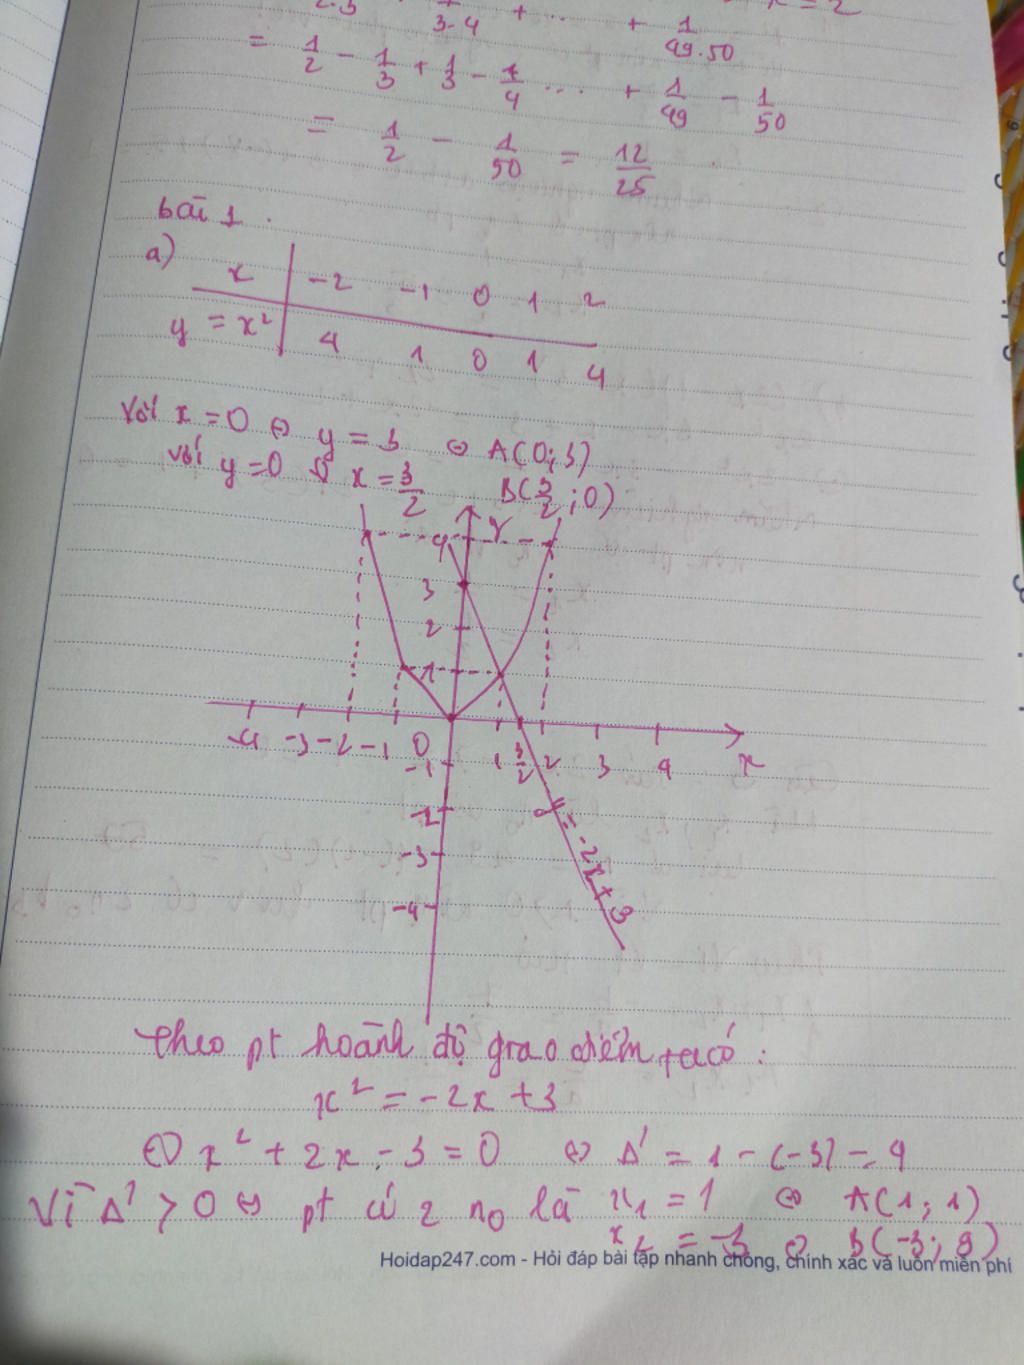 2.3 3.4 + ... + 1/49.50 x = 2
= 1/2 - 1/3 + 1/3 - 1/4 ... + 1/49 - 1/50
= 1/2 - 1/50 = 12/25
bài 1.
a)
x -2 -1 0 1 2
y = x² 4 1 0 1 4
Với x = 0 ⇔ y = 3 ⇔ A(0;3)
với y = 0 ⇔ x = 3/2 B(3/2;0)
4 Y
3
2
1
-4 -3 -2 -1 0 1 3/2 2 3 4 x
-1
-2
-3
-4
y = -2x + 3
Theo pt hoành độ giao điểm, ta có :
x² = -2x + 3
⇔ x² + 2x - 3 = 0 ⇔ Δ' = 1 - (-3) = 4
Vì Δ' > 0 ⇔ pt có 2 no là x₁ = 1 ⇔ A(1;1)
x₂ = -3 ⇔ B(-3;9)
Hoidap247.com - Hỏi đáp bài tập nhanh chóng, chính xác và luôn miễn phí